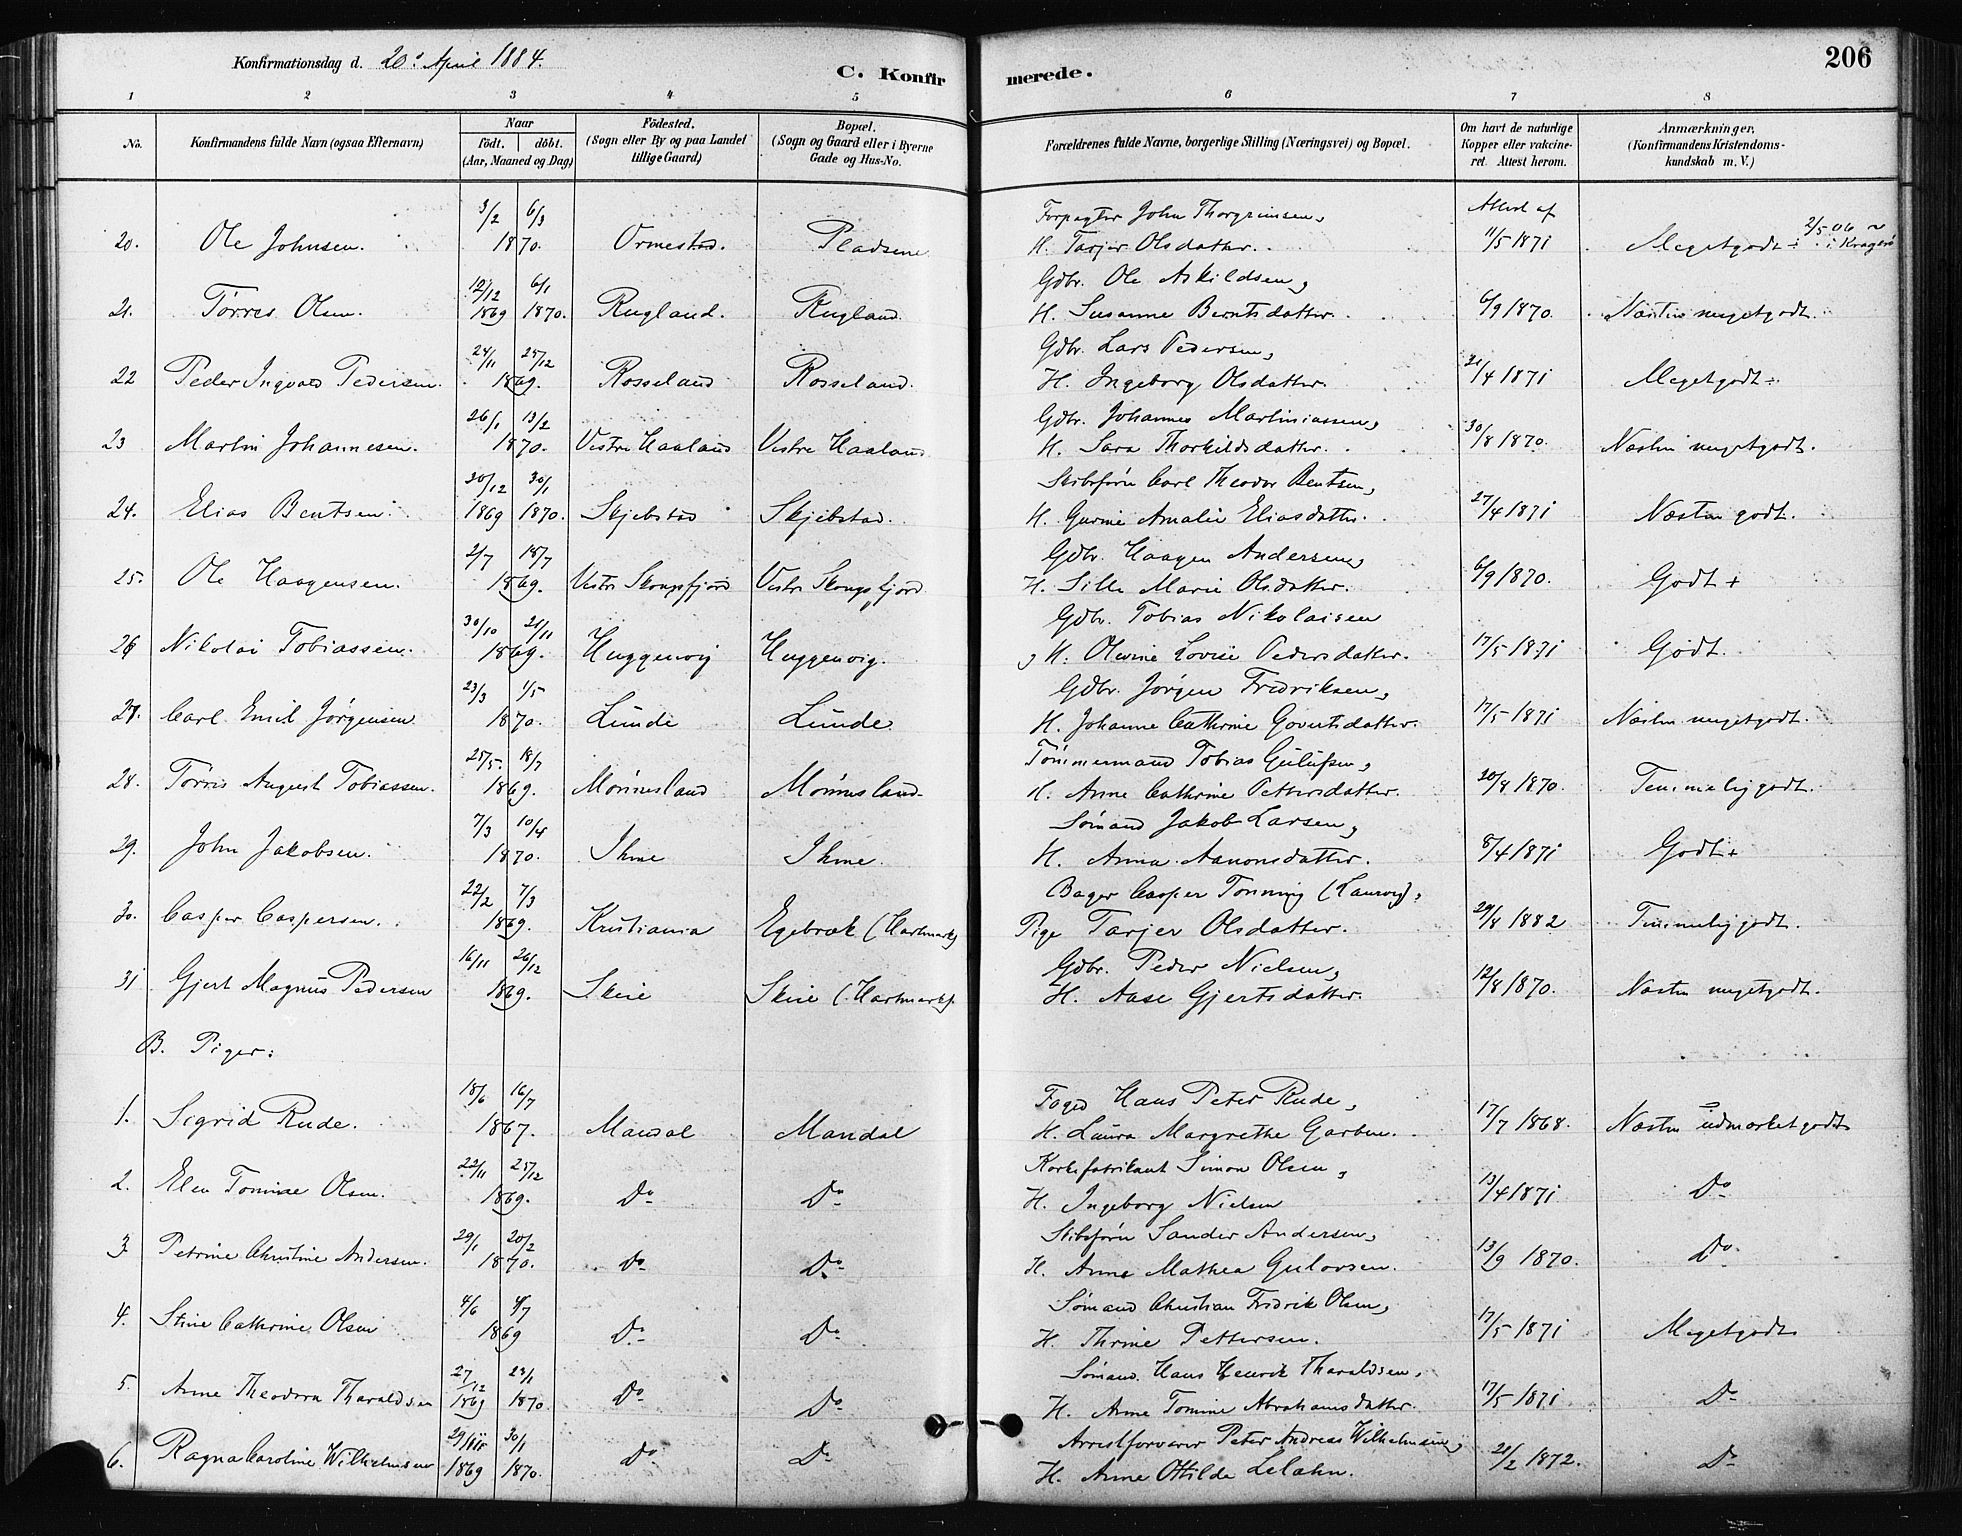 Konfirmationsdag d. 20' April 1884.
C. Konfirmerede.
206
1 2 3 4 5 6 7 8
No. Konfirmandens fulde Navn (ogsaa Efternavn) Naar födt. döbt. (Aar, Maaned og Dag) Födested. (Sogn eller By og paa Landet tillige Gaard) Bopæl. (Sogn og Gaard eller i Byerne Gade og Hus-No. Forældrenes fulde Navne, borgerlige Stilling (Næringsvei) og Bopæl. Om havt de naturlige Kopper eller vakcineret. Attest herom. Anmærkninger. (Konfirmandens Kristendomskundskab m. V.)
3/2 6/3 Forpagter John Thorgrimsen, Attest af
20. Ole Johnsen. 1870. Ormestad. Pladsene H. Tarjer Olsdatter. 11/5 1871 Megetgodt ÷ 2/5 06 i Kragerø
12/12 6/1 Gdbr. Ole Askildsen,
21. Tørres Olsen. 1869 1870. Rugland. Rugland. H. Susanne Berntsdatter. 6/9 1870. Næsten megetgodt.
24/11 25/12 Gdbr. Lars Pedersen,
22 Peder Ingvald Pedersen. 1869. Rosseland Rosseland. H. Ingeborg Olsdatter. 21/4 1871 Megetgodt ÷
26/1 13/2 Gdbr. Johannes Martiniassen,
23 Martin Johannesen. 1870. Vestre Haaland Vestre Haaland H. Sara Thorkildsdatter. 30/8 1870. Næsten megetgodt.
30/12 30/1 Skibsförer Carl Theodor Bentsen,
24. Elias Bentsen. 1869 1870. Skjebstad Skjebstad. H. Gurine Amalie Eliasdatter. 27/4 1871 Næsten godt.
2/7 18/7 Gdbr. Haagen Andersen,
25. Ole Haagensen. 1869. Vestre Skougsfjord Vestre Skougsfjord H. Sille Marie Olsdatter. 6/9 1870. Godt +
30/10 21/11 Gdbr. Tobias Nikolaisen
26 Nikolai Tobiassen. 1869. Huggenvig Huggenvig. , H. Olevine Lovise Pedersdatter. 17/5 1871 Godt.
23/3 1/5 Gdbr. Jørgen Fredriksen,
27. Carl Emil Jørgensen 1870. Lunde Lunde. H. Johanne Cathrine Govertsdatter. 17/5 1871 Næsten megetgodt.
25/5. 18/7 Tømmermand Tobias Gulufsen,
28. Tørris August Tobiassen. 1869. Mønnesland Mønnesland. H. Anne Cathrine Pettersdatter. 20/8 1870. Temmelig godt.
7/3 10/4 Sømand Jakob Larsen,
29. John Jakobsen. 1870. Ihme Ihme. H. Anna Aanonsdatter. 8/4 1871 Godt +
22/2 7/3 Bager Casper Tønning (Laurvig),
30. Casper Caspersen. 1869. Kristiania Egebræk (Hartmark) Pige Tarjer Olsdatter. 29/8 1882 Temmelig godt.
16/11 26/12 Gdbr. Peder Nielsen,
31 Gjert Magnus Pedersen 1869. Skeie Skeie (Hartmark). H. Aase Gjertsdatter. 12/8 1870. Næsten megetgodt.
B. Piger:
18/6 16/7 Foged Hans Peter Rude,
1. Sigrid Rude. 1867. Mandal Mandal H. Laura Margrethe Garben. 17/7 1868. Næsten udmærketgodt
22/11 25/12 Korkefabrikant Simon Olsen,
2. Elen Tomine Olsen. 1869. Do Do H. Ingeborg Nielsen 13/4 1871 Do
29/1 20/2 Skibsförer Sander Andersen,
3. Petrine Christine Andersen. 1870. Do Do H. Anne Mathea Gulovsen. 13/9 1870. Do
4/6 4/7 Sømand Christian Fredrik Olsen,
4. Stine Cathrine Olsen 1869 Do Do H. Thrine Pettersen. 17/5 1871 Megetgodt
27/12 23/1 Sømand Hans Henrik Tharaldsen,
5. Anne Theodora Tharaldsen 1869 1870. Do Do H. Anne Tomine Abrahamsdatter. 17/5 1871 Do
29/12 30/1 Arrestforvarer Peter Andreas Wilhelmsen,
6. Ragna Caroline Wilhelmsen 1869 1870. Do Do H. Anne Ottilde Lelahn. 21/2 1872. Do